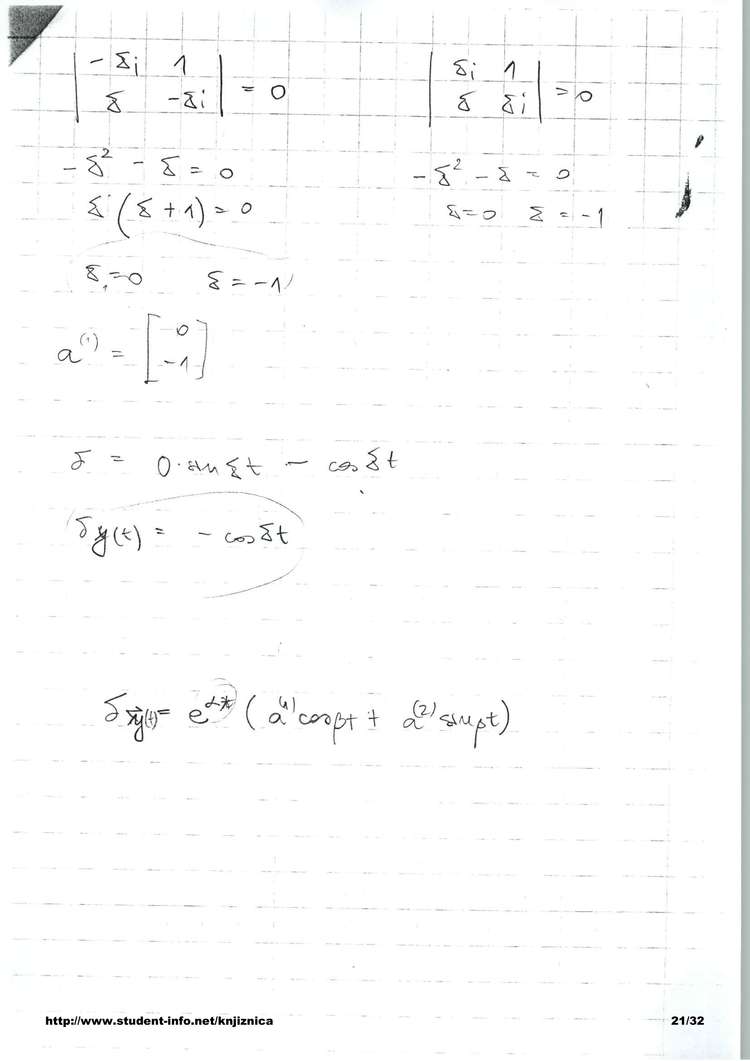 | -δi 1 |
| δ -δi | = 0
-δ² - δ = 0
δ (δ + 1) = 0
δ₁ = 0 δ = -1
| δi 1 |
| δ δi | = 0
-δ² - δ = 0
δ = 0 δ = -1
a⁽¹⁾ = [ 0
-1 ]
δ = 0·sin δt - cos δt
δy(t) = - cos δt
(t) = e ( a⁽¹⁾ cosβt + a⁽²⁾ sinβt)
http://www.student-info.net/knjiznica
21/32